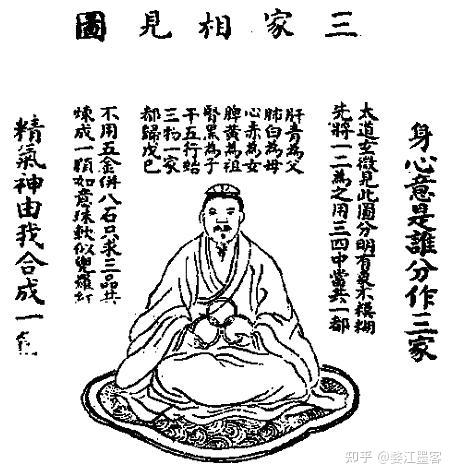 三家相見圖
身心意是誰分作三家
太道玄微見此圖分明有不模糊
先將一二為之用三四中當共一都
肝青為父
肺白為母
心赤為女
脾黃為祖
腎黑為子
子五行始
三物一家
都歸戊己
不用五金併八石只求三品共
煉成一顆如意珠軟似兜羅紅
精氣神由我合成一
知乎 @娄江墨客